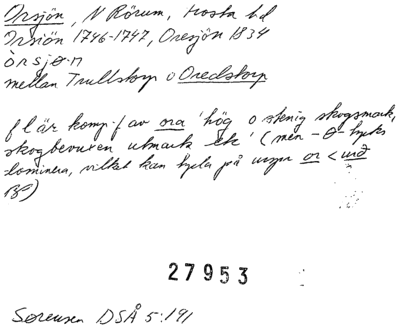 Orsjön, N Rörum, Frosta hd
Orsiön 1746-1747, Oresjön 1834
òrsjøn
mellan Trullstorp o Oredstorp
f l är komp-f av ora 'hög o stenig skogsmark,
skogbevuxen utmark etc' (men -θ- tycks
dominera, vilket kan tyda på urspr or < urð
139)
27953
Sørensen DSÅ 5:191